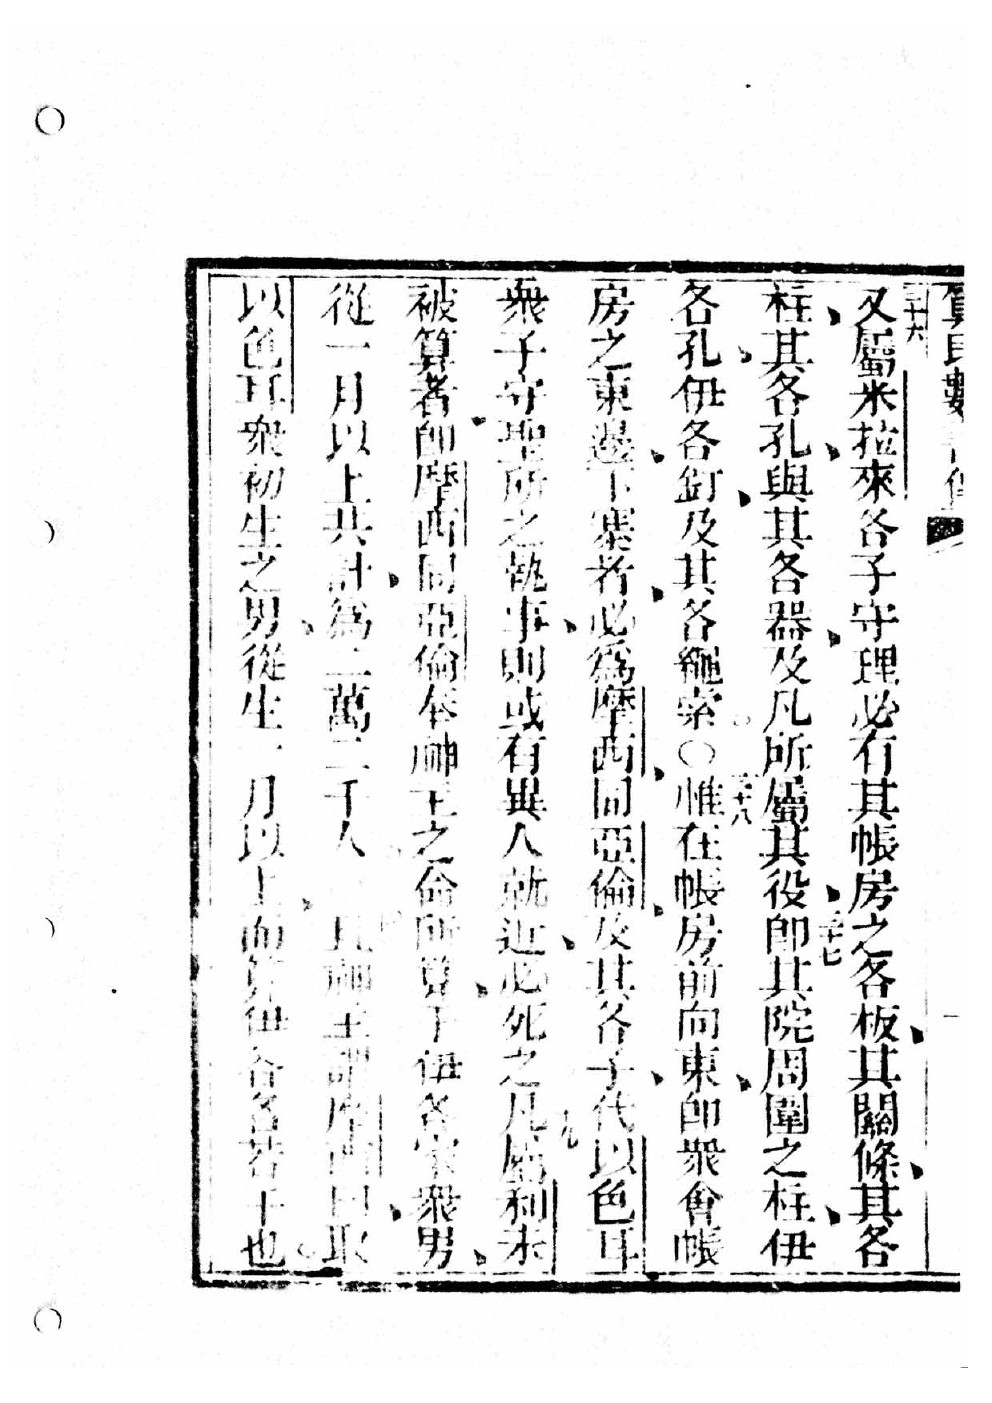 三十六
又屬米拉來各子守理必有其帳房之各板其關條其各
柱其各孔與其各器及凡所屬其役即其院周圍之柱伊
三十七
各孔伊各釘及其各繩索〇惟在帳房前向東即衆會帳
三十八
房之東邊下寨者必為摩西同亞倫及其各子代以色耳
衆子守聖所之執事則或有異人就近必死之凡屬利未
被算者即摩西同亞倫奉神主之命所算于伊各家衆男
從一月以上共計為二萬二千人 神主謂摩西曰取
以色耳衆初生之男從生一月以上而算伊各名若干也